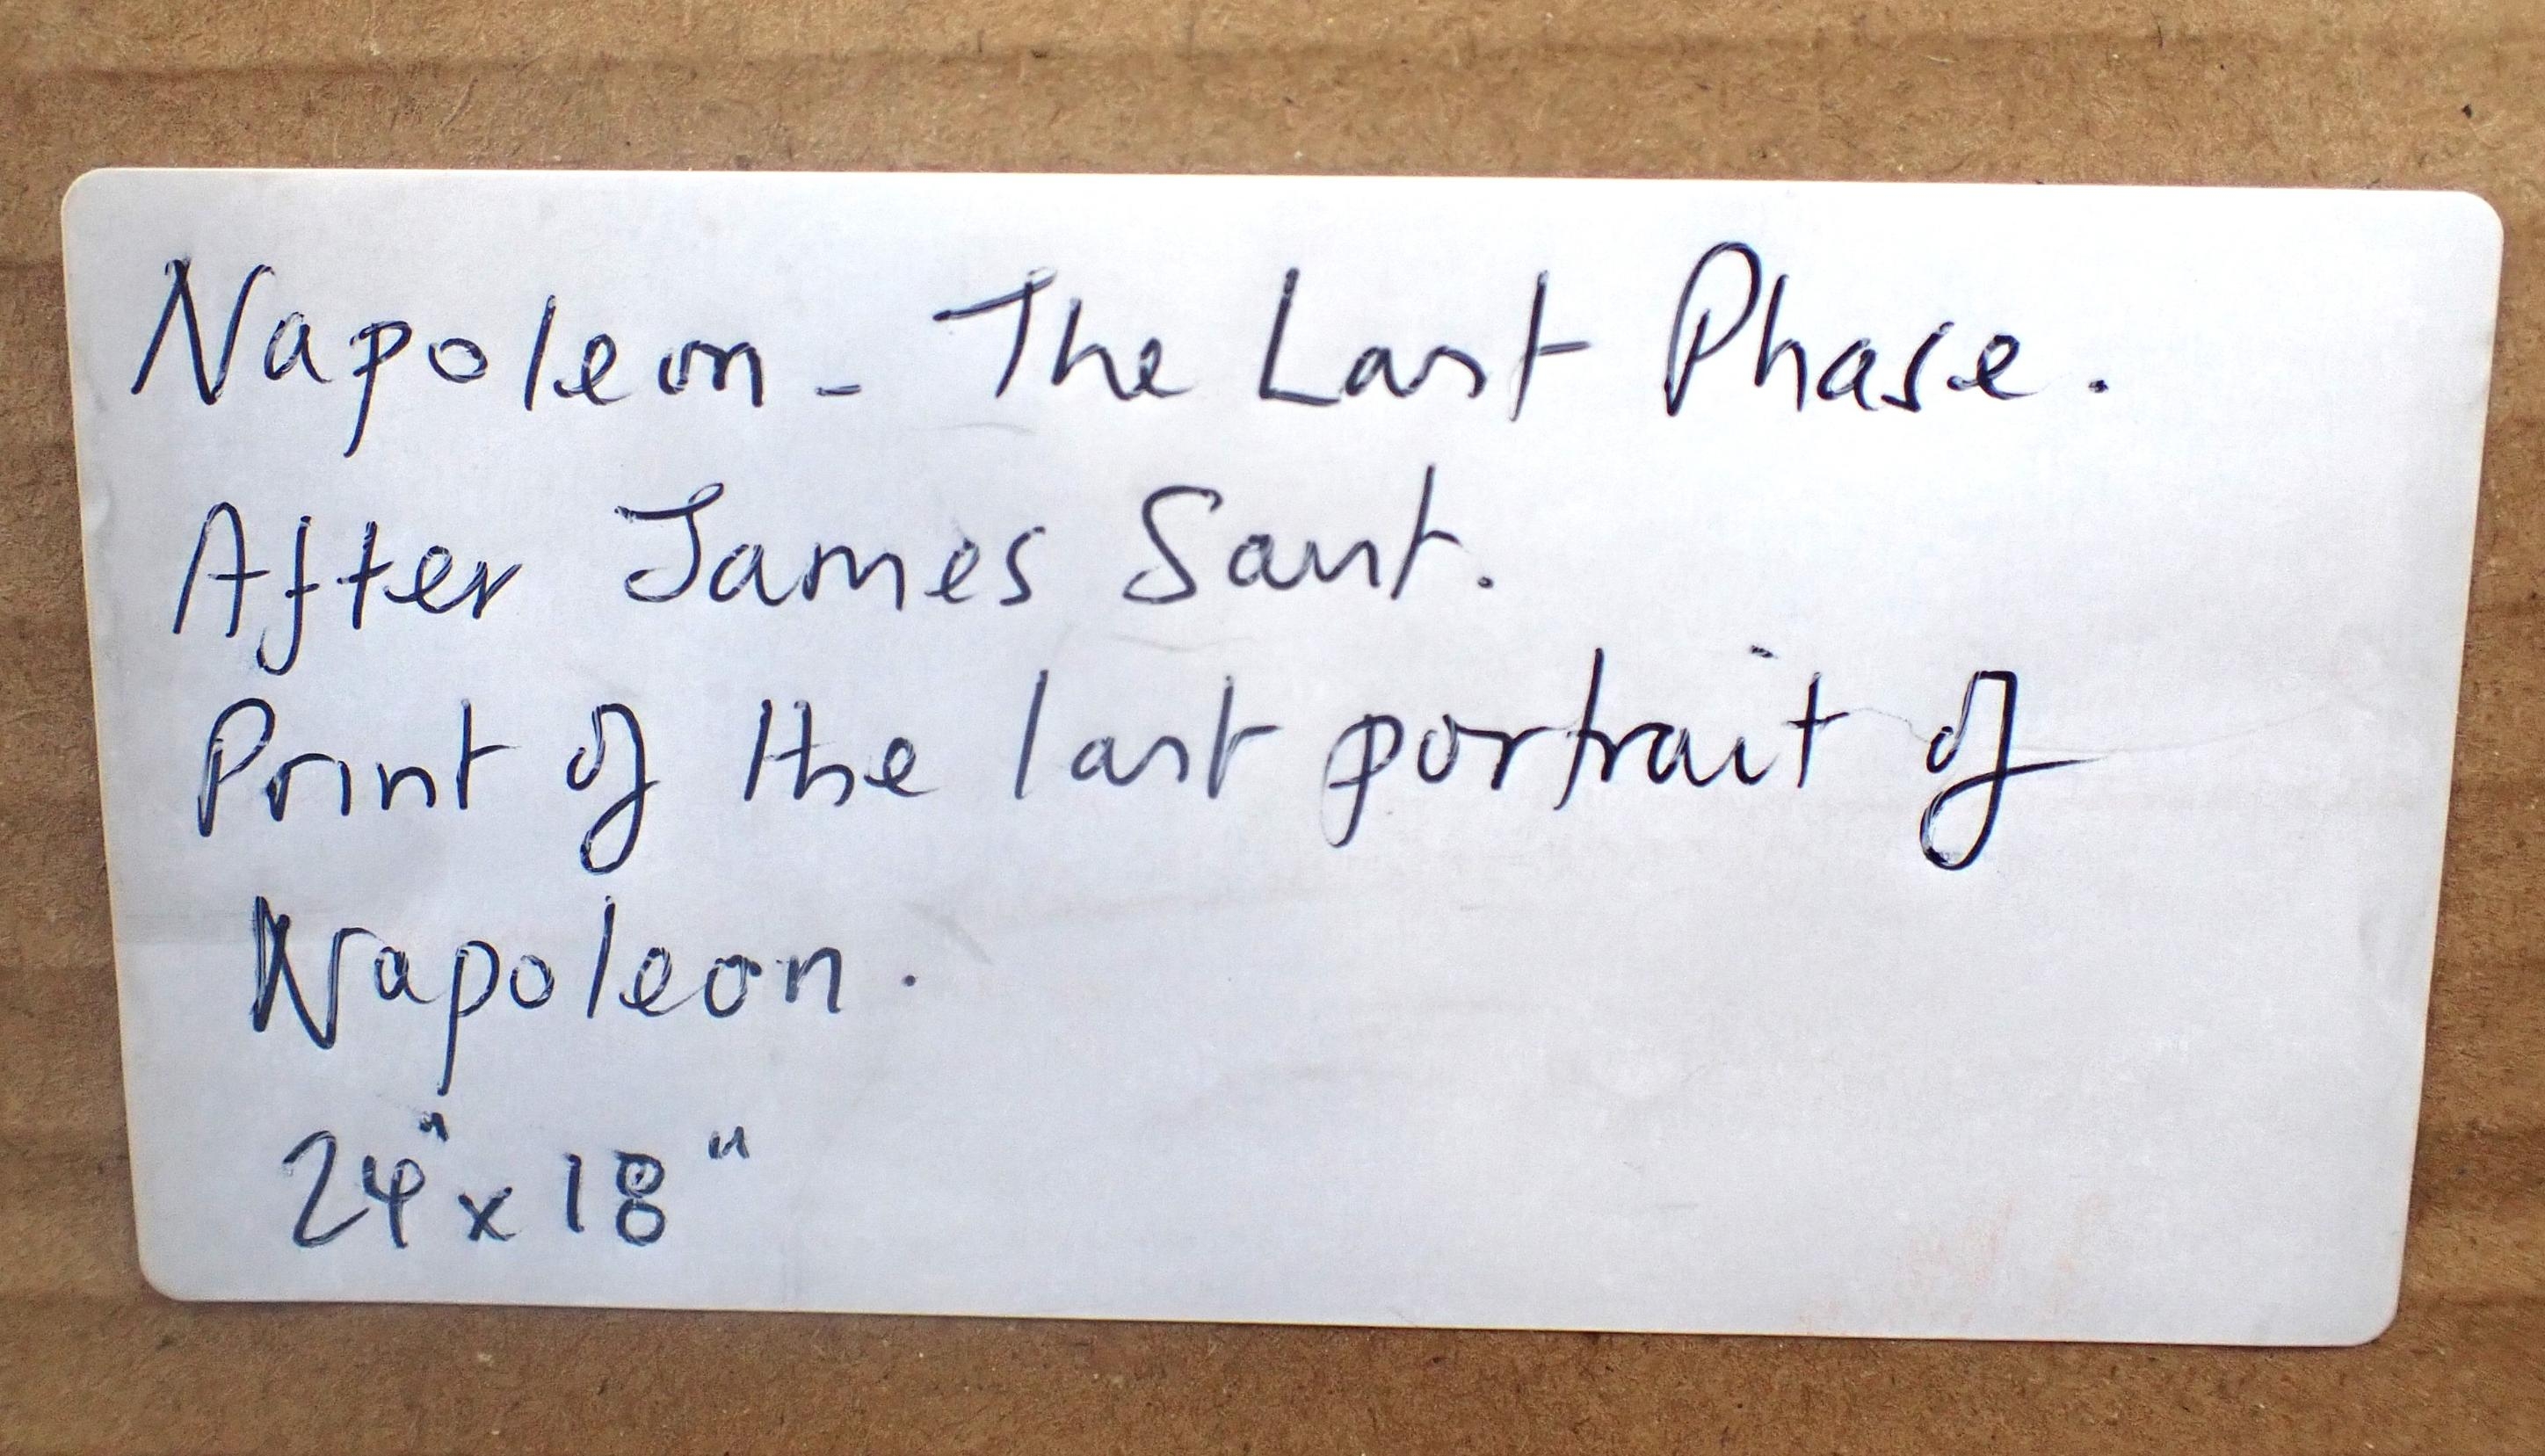 Napoleon - The Last Phase.
After James Sant.
Print of the last portrait of
Napoleon.
24" x 18"